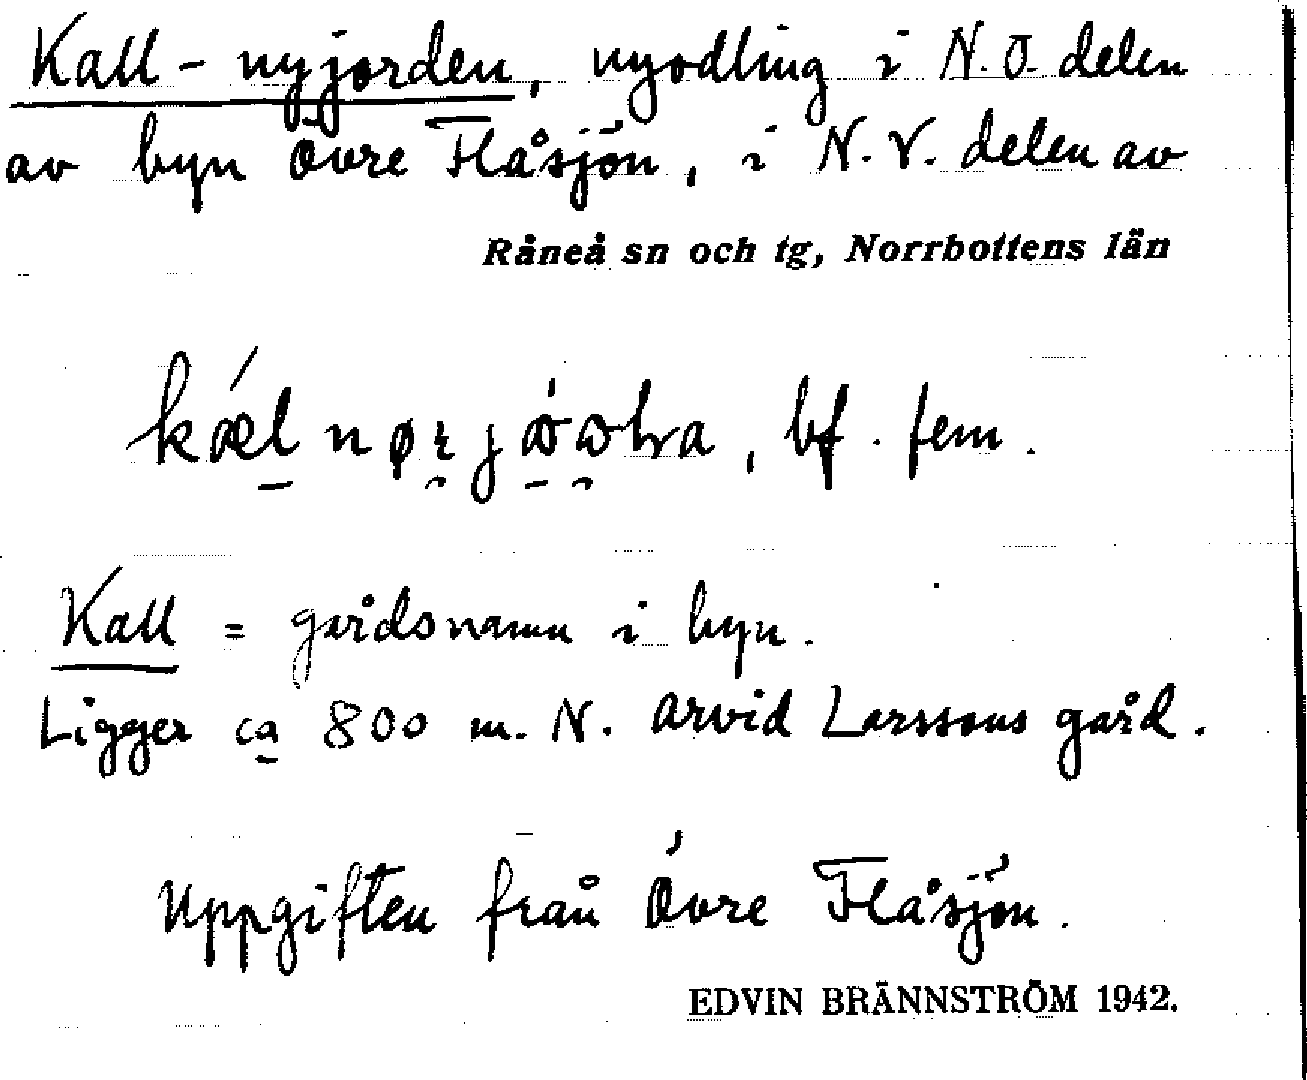 Kall-nyjorden, nyodling i N.O. delen
av byn Övre Flåsjön, i N.V. delen av
Råneå sn och tg, Norrbottens län
bf. fem.
Kall = gårdsnamn i byn.
Ligger ca 800 m. N. Arvid Larssons gård.
Uppgiften från Övre Flåsjön.
EDVIN BRÄNNSTRÖM 1942.